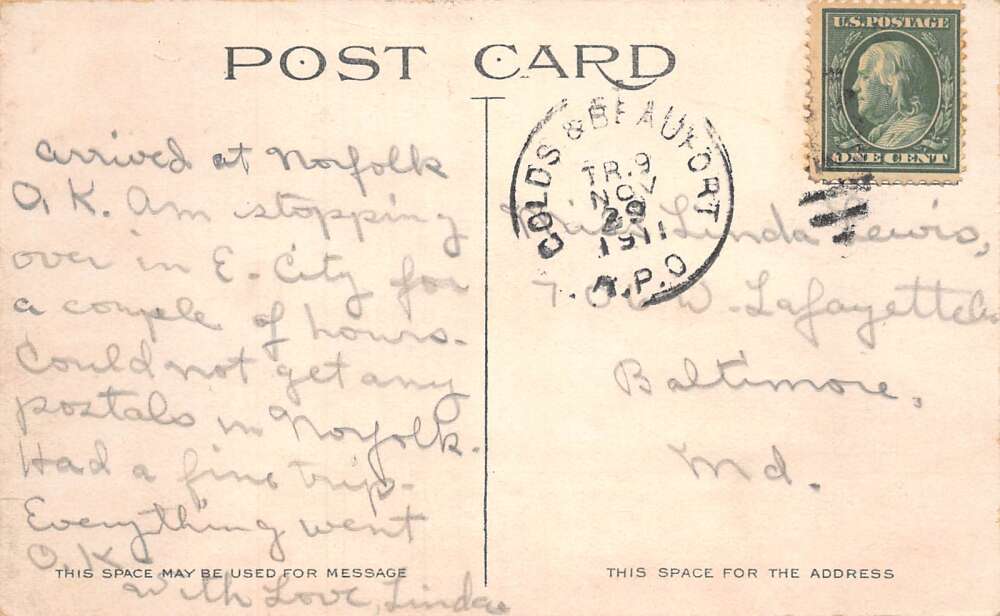 POST CARD
U.S. POSTAGE
ONE CENT
GOLDS & BEAUFORT
TR. 9
NOV
29
1911
R.P.O
arrived at Norfolk
O.K. Am stopping
over in E. City for
a couple of hours.
Could not get any
postals in Norfolk.
Had a fine trip-
Everything went
O.K.
With Love, Linda
Miss Linda Lewis,
W. Lafayette
Baltimore,
Md.
THIS SPACE MAY BE USED FOR MESSAGE
THIS SPACE FOR THE ADDRESS